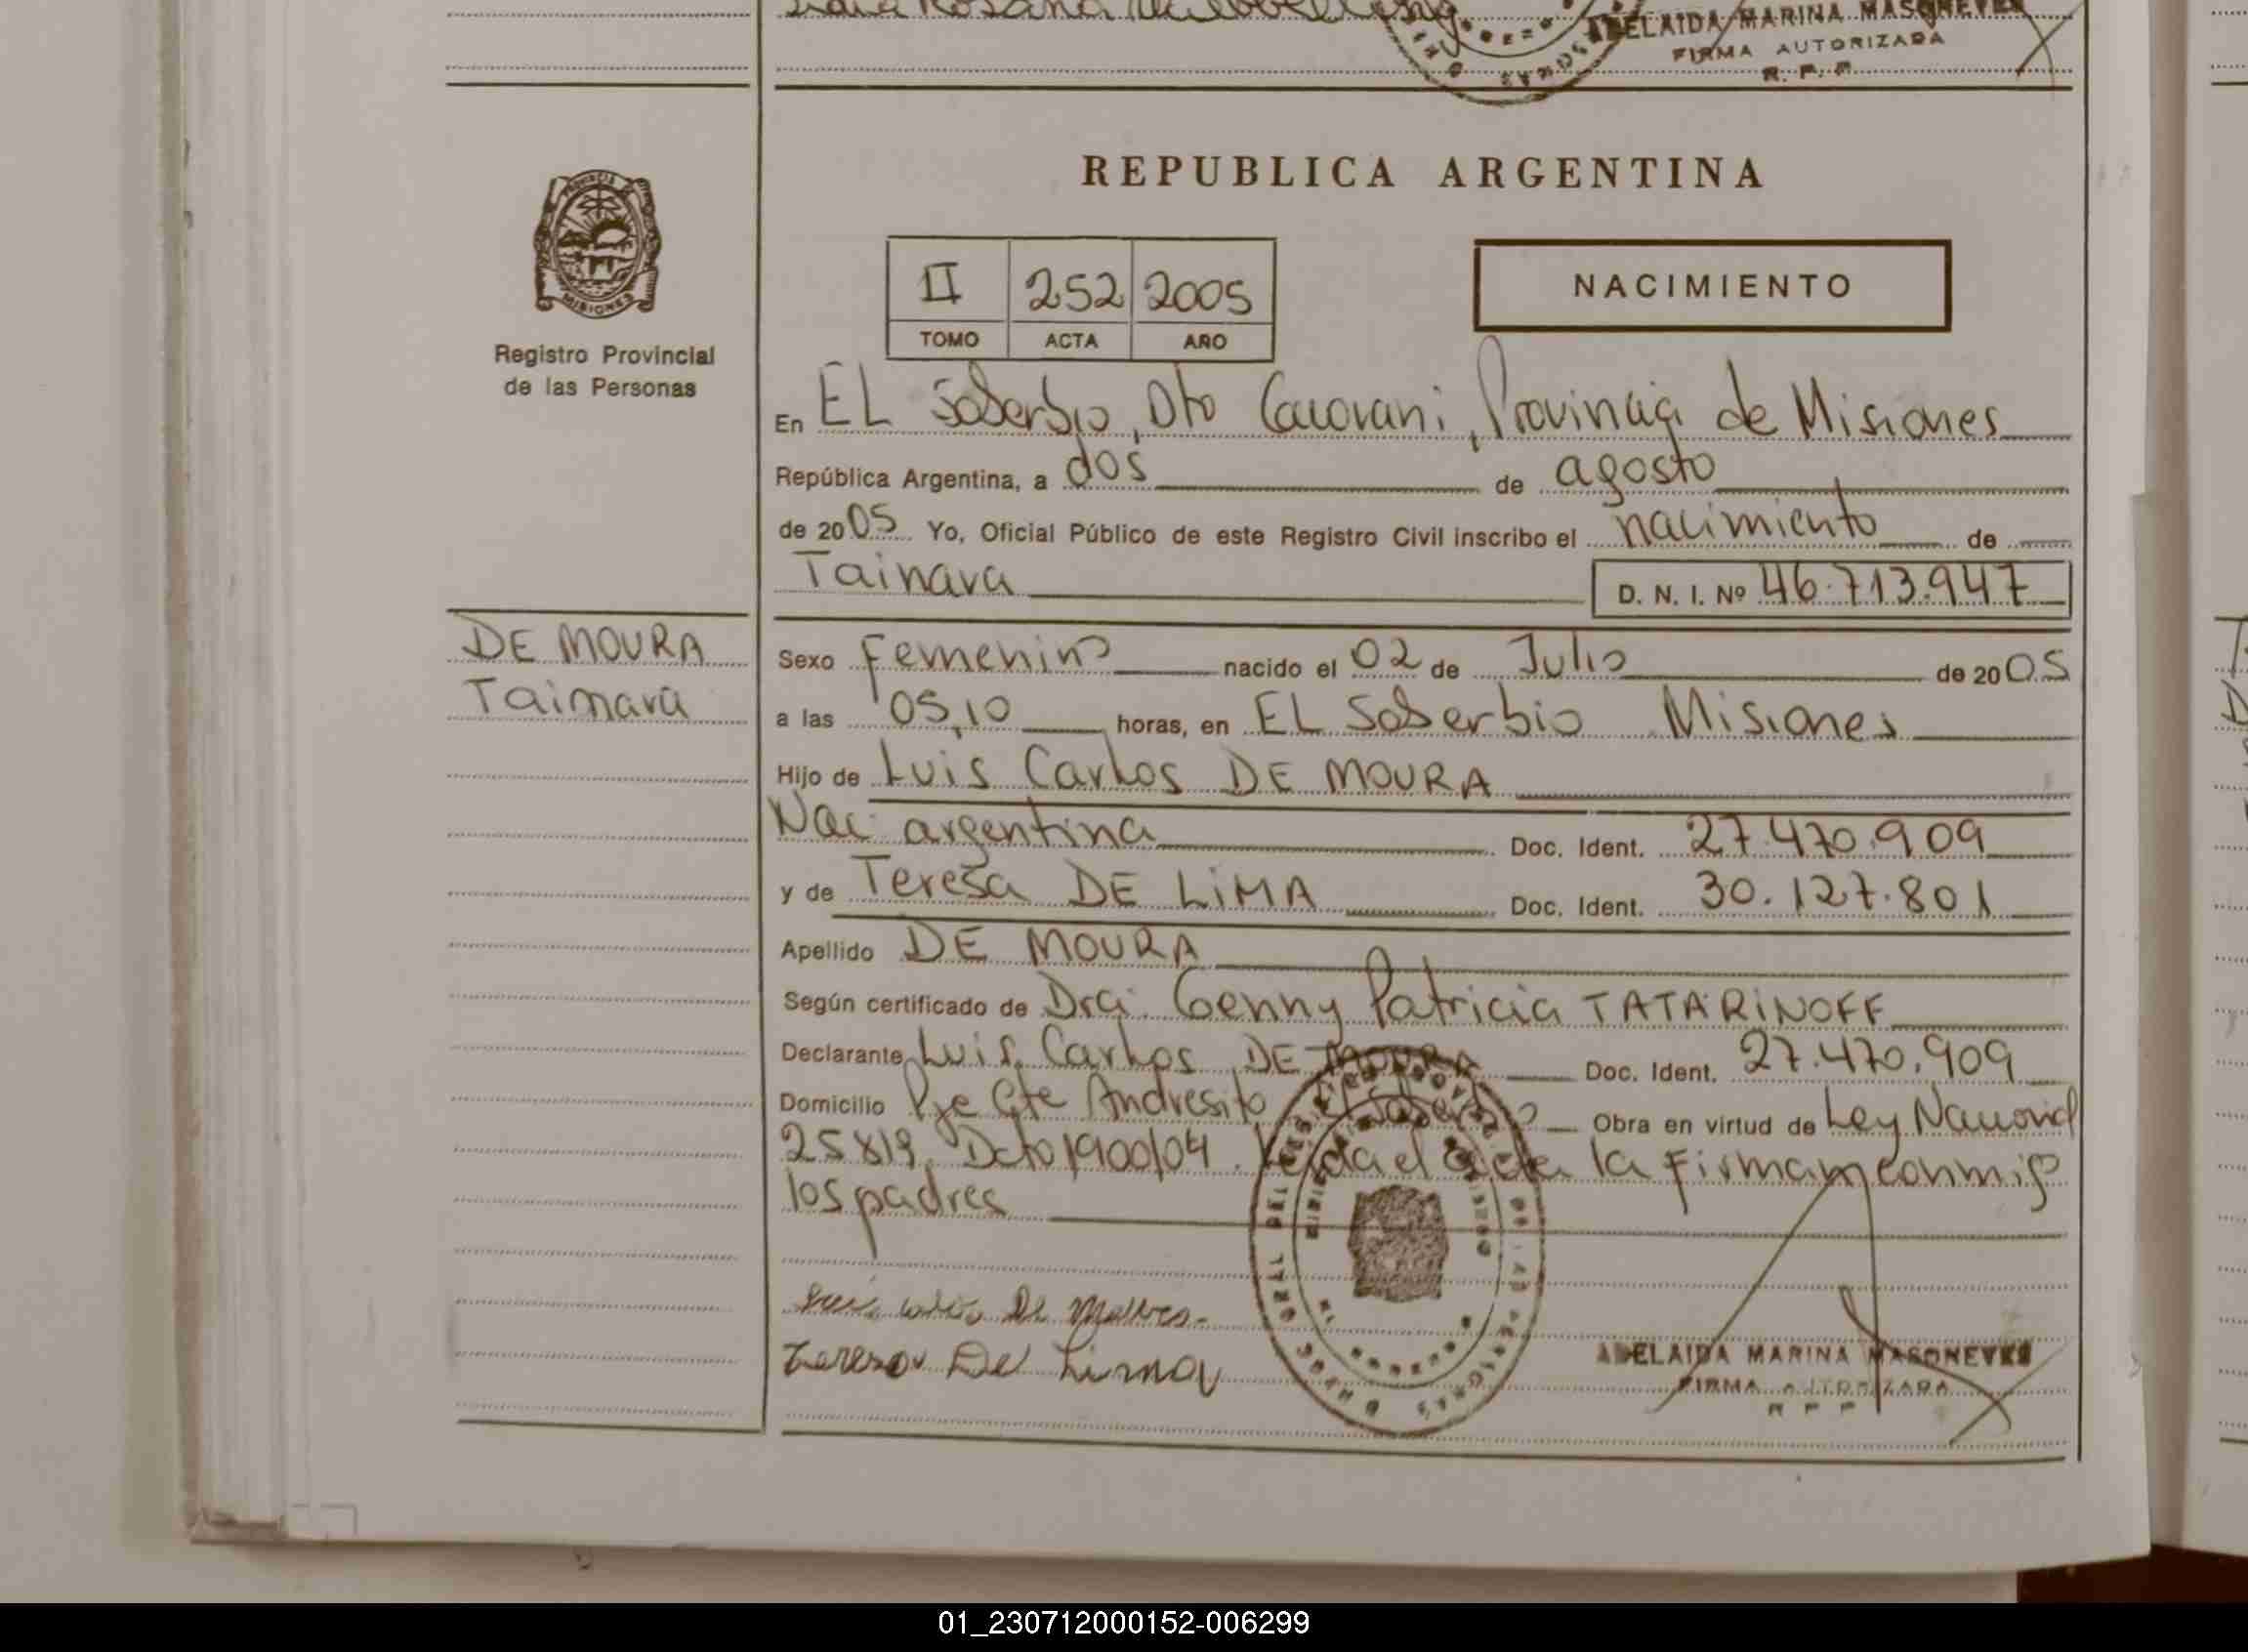 ADELAIDA MARINA MASONEVES
FIRMA AUTORIZADA
R. P. P.
PROVINCIA DE
MISIONES
Registro Provincial
de las Personas
REPUBLICA ARGENTINA
II 252 2005
TOMO ACTA AÑO
NACIMIENTO
En EL Soberbio, Dto Guarani, Provincia de Misiones
República Argentina, a dos de agosto
de 2005 Yo, Oficial Público de este Registro Civil inscribo el nacimiento de
Tainara
D. N. I. Nº 46.713.947
DE MOURA
Tainara
Sexo Femenino nacido el 02 de Julio de 2005
a las 05,10 horas, en EL Soberbio Misiones
Hijo de Luis Carlos DE MOURA
Nac. argentina Doc. Ident. 27.470.909
y de Teresa DE LiMA Doc. Ident. 30.127.801
Apellido DE MOURA
Según certificado de Dra. Genny Patricia TATARiNOFF
Declarante Luis Carlos DE MOURA Doc. Ident. 27.470.909
Domicilio Pje Cte Andresito El Soberbio Obra en virtud de Ley Nacional
25819, Dcto 1900/04. Leida el acta la firman conmigo
los padres
Teresa De Lima
ADELAIDA MARINA MASONEVES
FIRMA AUTORIZADA
R P P
01_230712000152-006299